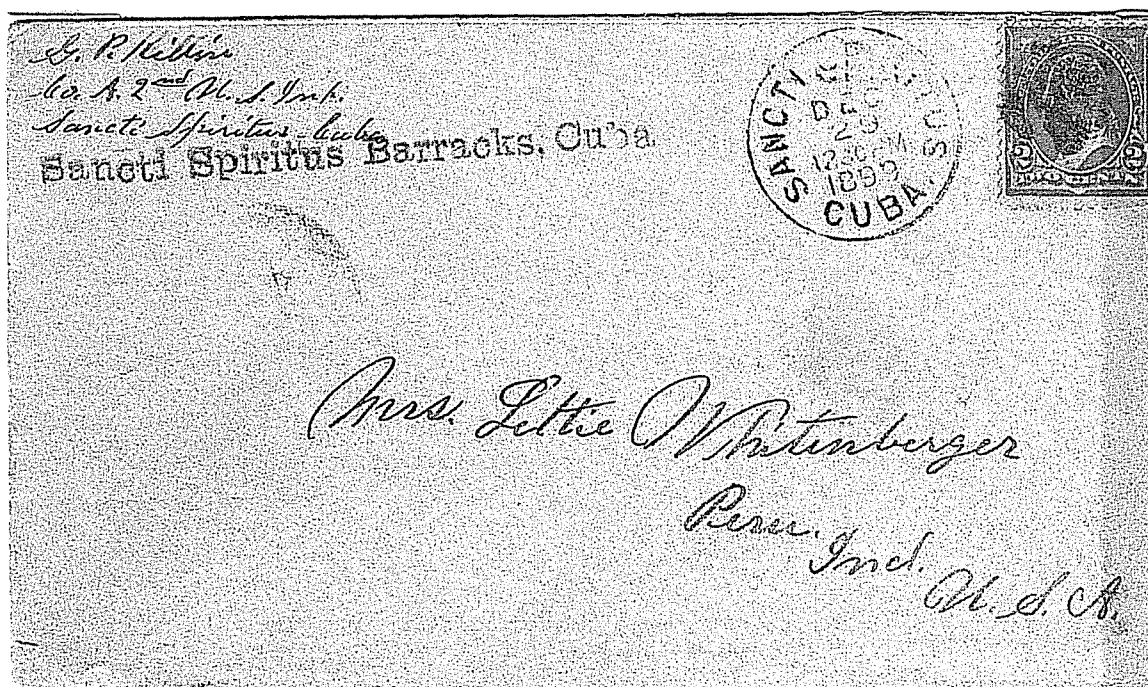 G. P.
Co. A. 2nd U. S. Inf.
Sancti Spiritus Cuba
Sancti Spiritus Barracks, Cuba
SANCTI SPIRITUS
DEC
29
12 30 PM
1899
CUBA.
2 2
Mrs. Lettie Whitenberger
Peru,
Ind.
U. S. A.